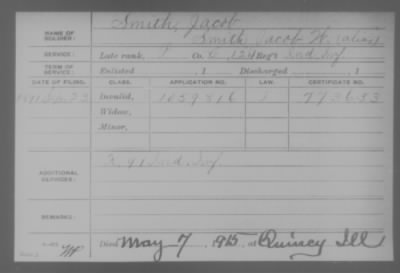 NAME OF SOLDIER: Smith, Jacob
Smith, Jacob W. (alias)
SERVICE: Late rank, Co. 124 Reg't Ind. Inf.
TERM OF SERVICE: Enlisted , 1 Discharged , 1
DATE OF FILING. CLASS. APPLICATION NO. LAW. CERTIFICATE NO.
1891 Invalid, 773633
Widow,
Minor,
ADDITIONAL SERVICES: K 91 Ind. Inf.
REMARKS:
Died May 7 1915, at Quincy Ill